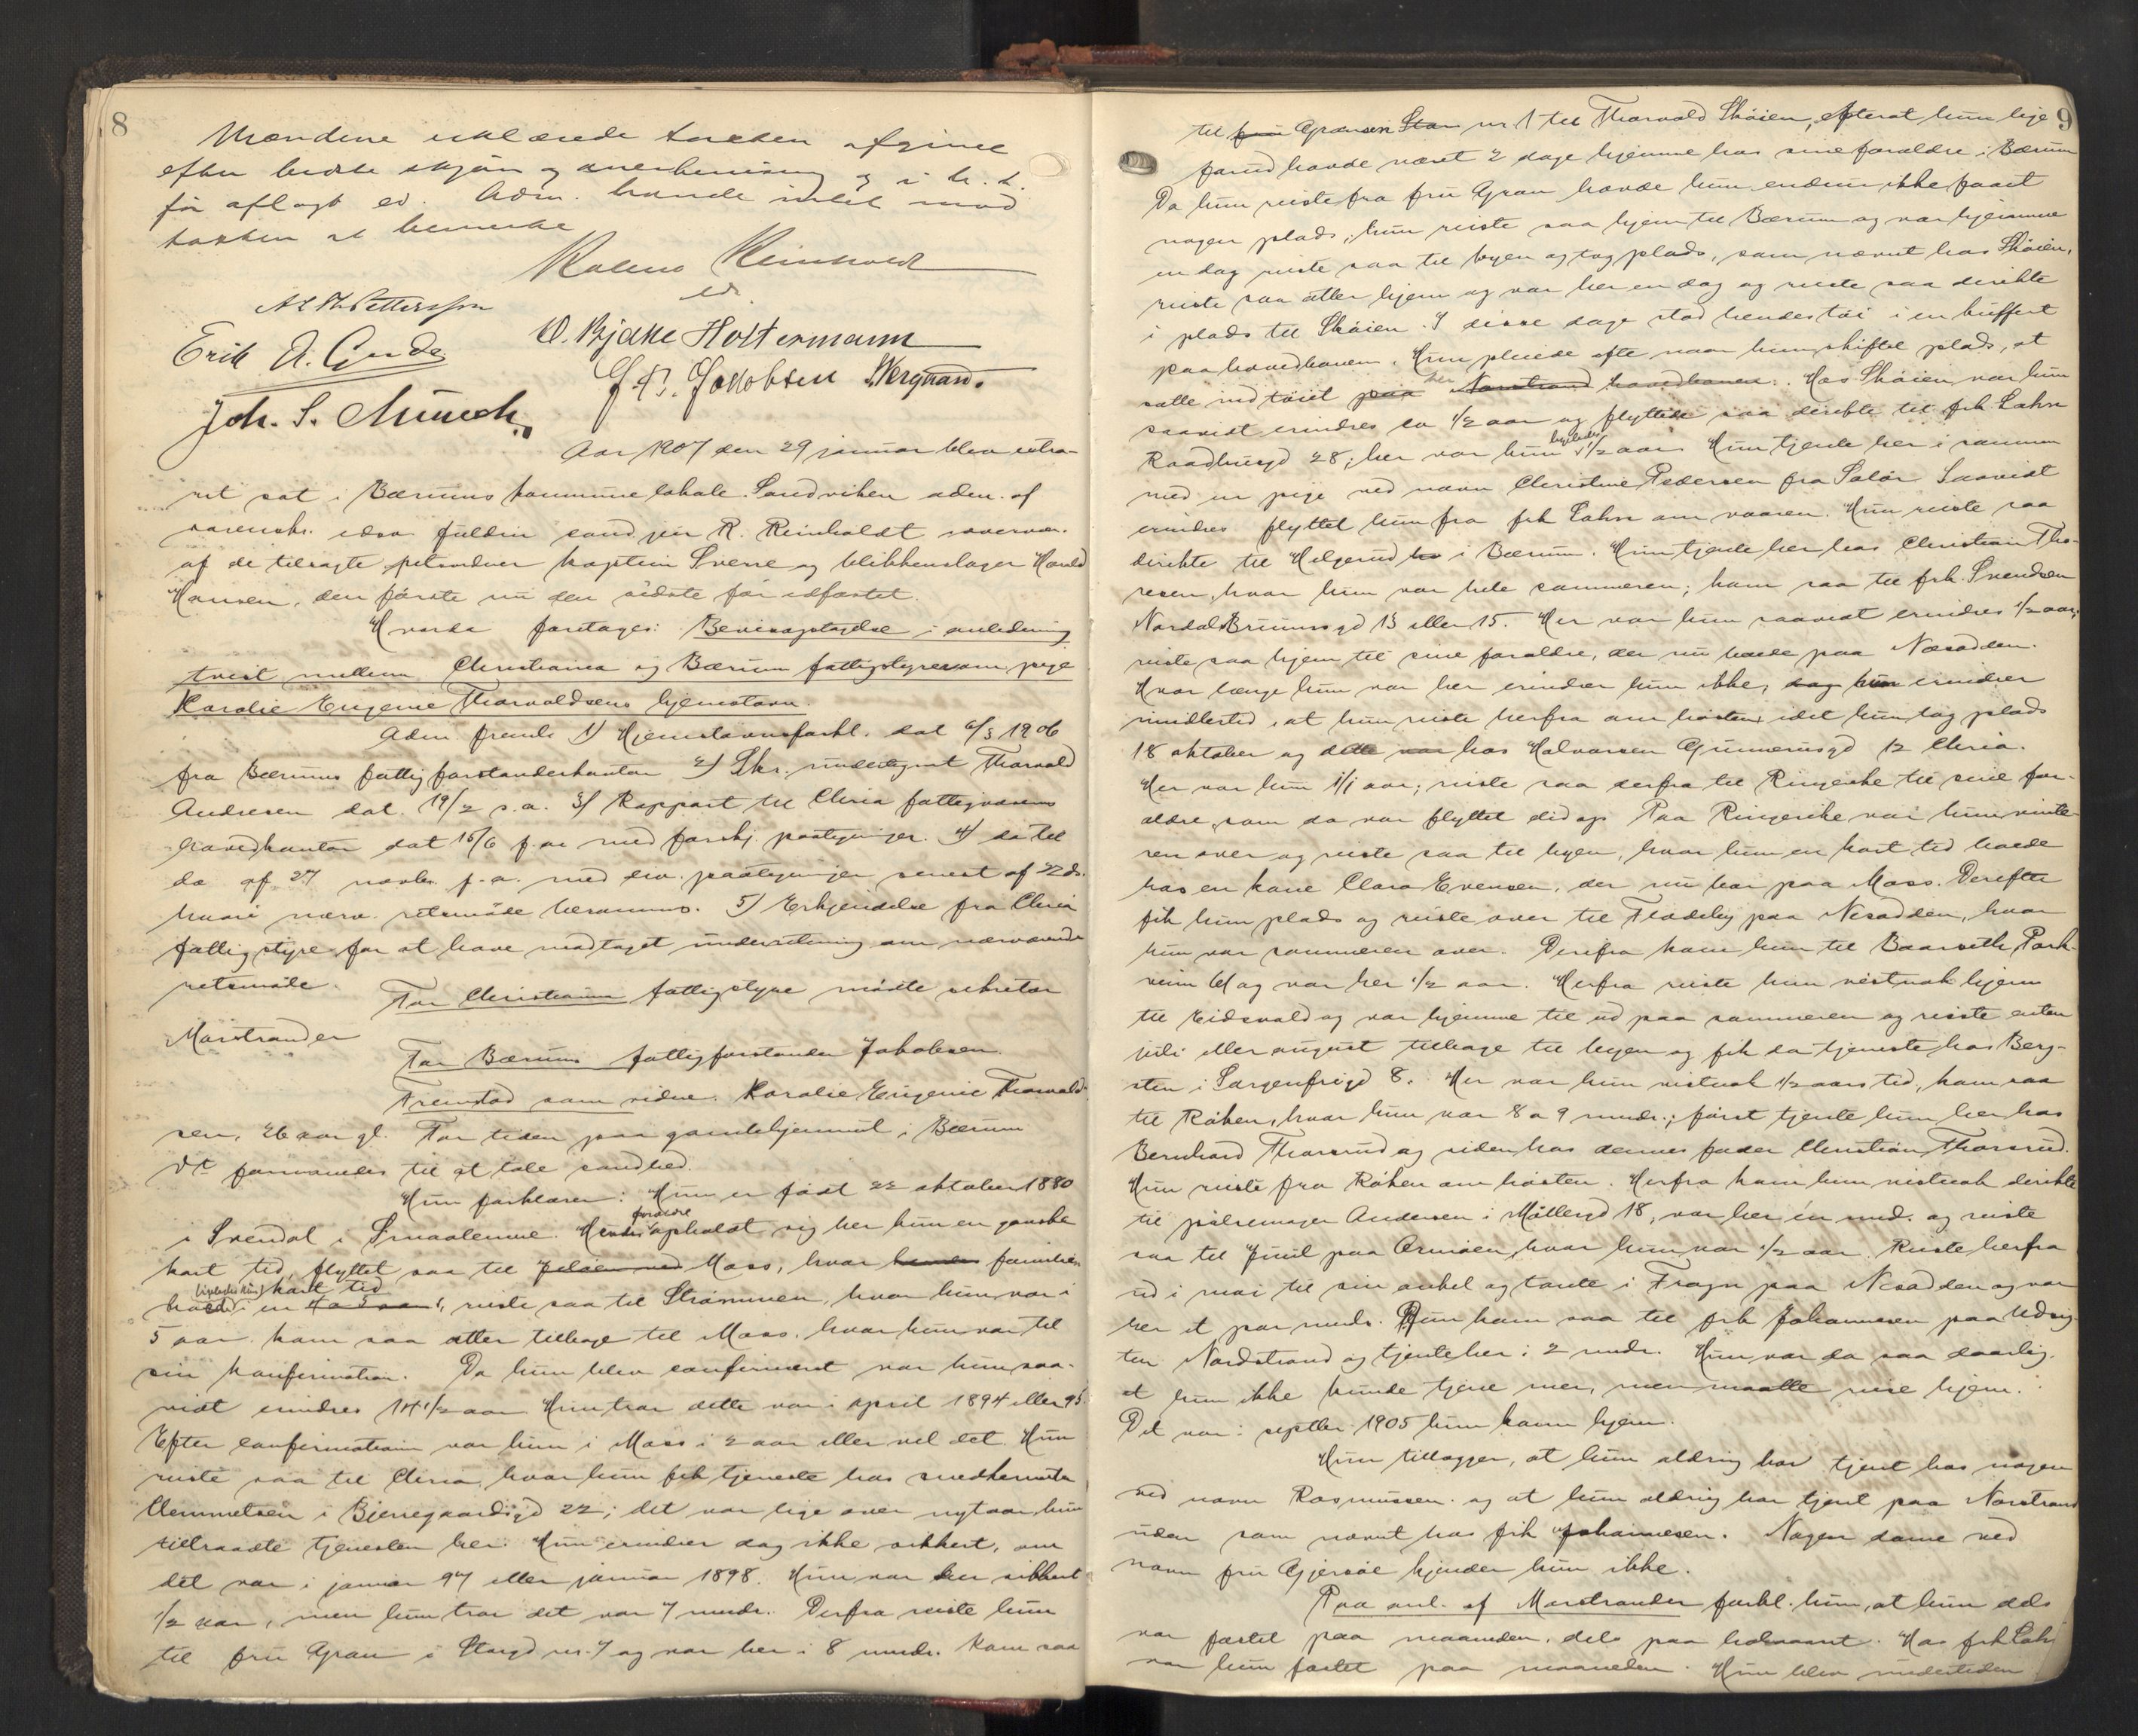 8
Mændene erklærede taksten afgivet
efter bedste skjøn og overbevisning og i h. t.
før aflagt ed. Adm. havde intet mod
taksten at bemerke
Reinholdt
Pettersson
Erik A. Gude
O. Bjakke Holtermann
J. P. Jakobsen Skergaard.
Joh. S. Munch
Aar 1907 den 29 januar blev extra-
ret sat i Bærums kommunelokale Sandviken adm. af
sorensk. edsv. fuldm. cand. jur R. Reinholdt overvær.
af de tilsagte retsvidner kaptein Sverre og blikkenslager Harald
Hansen, den første nu den sidste før edfæstet.
Hvorda foretages: Bevisoptagelse i anledning
tvist mellem Christiania og Bærum fattigstyre om pige
Karolie Eugenie Thorvaldsens hjemstavn.
Adm. freml. 1) Hjemstavnsforkl. dat 6/3 1906
fra Bærums fattigforstanderkontor 2) Skr. undertegnet Thorvald
Andresen dat. 19/2 s.a. 3) Rapport til Chria fattigvæsens
hovedkontor dat 15/6 f.a. med forskj. paategninger. 4) do til
do af 27 novbr f.a. med div. paategninger senest af 22 ds.
hvori nærv. retsmøde berammes. 5) Erkjendelse fra Chria
fattigstyre for at have modtaget underretning om nærværende
retsmøde.
For Christiania fattigstyre mødte sekretær
Marstrander
For Bærums fattigforstander Jakobsen.
Fremstod som vidne. Karolie Eugenie Thorvald-
sen, 26 aar gl. For tiden paa gamlehjemmet i Bærum
Vt formanedes til at tale sandhed.
Hun forklarer: Hun er født 22 oktober 1880
i Svendal i Smaalenene. Hendes forældre opholdt sig her kun en ganske
kort tid, flyttet saa til Jeløen ved Moss, hvor hendes familie
boede i en 4 a 5 aar kort tid, reiste saa til Strømmen, hvor hun var i
5 aar. kom saa atter tilbage til Moss, hvor hun var til
sin konfirmation. Da hun blev confirmeret var hun saa-
vidt erindres 14 1/2 aar. Hun tror dette var i april 1894 eller 95.
Efter confirmationen var hun i Moss i 2 aar eller vel det. Hun
reiste saa til Chria, hvor hun fik tjeneste hos snedkermester
Clemmetsen i Bjerregaardsgd 22; det var lige over nytaar hun
tiltraadte tjenesten her. Hun erindrer dog ikke sikkert, om
det var i januar 97 eller januar 1898. Hun var her sikkert
1/2 aar, men hun tror det var 7 mndr. Derfra reiste hun
til fru Gran i Storgd nr. 7 og var her i 8 mndr. Kom saa
9
til fru Grænsen Stor nr 1 til Thorvald Skøien, efterat hun lige
forud havde været 2 dage hjemme hos sine forældre i Bærum
Da hun reiste fra fru Gran havde hun endnu ikke faaet
nogen plads; hun reiste saa hjem til Bærum og var hjemme
en dag reiste saa til byen og tog plads, som nævnt hos Skøien,
reiste saa atter hjem og var her en dag og reiste saa direkte
i plads til Skøien. I disse dage stod hendes tøi i en kuffert
paa hovedbanen. Hun pleiede ofte naar hun skiftet plads, at
sætte ind tøiet paa her Norstrand hovedbanen. Hos Skøien var hun
saavidt erindres ca 1/2 aar og flyttede saa direkte til frk. Lahn
Raadhusgd 28; her var hun ligeledes 1/2 aar. Hun tjente her i sammen
med en pige ved navn Christine Pedersen fra Solør. Saavidt
erindres flyttet hun fra frk Lahn om vaaren. Hun reiste saa
direkte til Helgerud ho i Bærum. Hun tjente her hos Christian Tho-
resen, hvor hun var hele sommeren; kom saa til frk. Svendsen
Nordal Brunsgd 13 eller 15. Her var hun saavidt erindres 1/2 aar;
reiste saa hjem til sine forældre, der nu boede paa Næsodden.
Hvor længe hun var her erindrer hun ikke, dog hun erindrer
imidlertid, at hun reiste herfra om høsten, idet hun tog plads
18 oktober og dette var hos Halvorsen Gunnerusgd 12 Chria.
Her var hun 1/1 aar; reiste saa derfra til Ringerike til sine for-
ældre, som da var flyttet did op. Paa Ringerike var hun vinte-
ren over og reiste saa til byen, hvor hun en kort tid boede
hos en kone Clara Evensen, der nu bor paa Moss. Derefter
fik hun plads og reiste over til Fladeby paa Nesodden, hvor
hun var sommeren over. Derfra kom hun til Baarseth, Park-
veien 61 og var her 1/2 aar. Herfra reiste hun vistnok hjem
til Eidsvold og var hjemme til ud paa sommeren og reiste enten
juli eller august tilbage til byen og fik da tjeneste hos Berg-
sten i Sorgenfrigd 8. Her var hun vistnok 1/2 aars tid, kom saa
til Røken, hvor hun var 8 a 9 mndr.; først tjente hun her hos
Bernhard Thorsrud og siden hos dennes fader Christian Thorsrud.
Hun reiste fra Røken om høsten. Herfra kom hun vistnok direkte
til pølsemager Andersen i Møllergd 18, var her én mnd. og reiste
saa til Juul paa Ormøen, hvor hun var 1/2 aar. Reiste herfra
ud i mai til sin onkel og tante i Frogn paa Nesodden og var
her et par mndr. Hun kom saa til frk Johannesen paa Udsig-
ten Nordstrand og tjente her i 2 mndr. Hun var da saa daarlig
at hun ikke kunde tjene mer, men maatte reise hjem.
Det var i septbr. 1905 hun kom hjem.
Hun tillægger, at hun aldrig har tjent hos nogen
ved navn Rasmussen og at hun aldrig har tjent paa Norstrand
uden som nævnt hos frk Johannesen. Nogen dame ved
navn fru Gjersøe kjender hun ikke.
Paa anl. af Marstrander forkl. hun, at hun dels
var fæstet paa maaneden, dels paa halvaaret. Hos frk Lahn
var hun fæstet paa maaneden. Hun blev undertiden